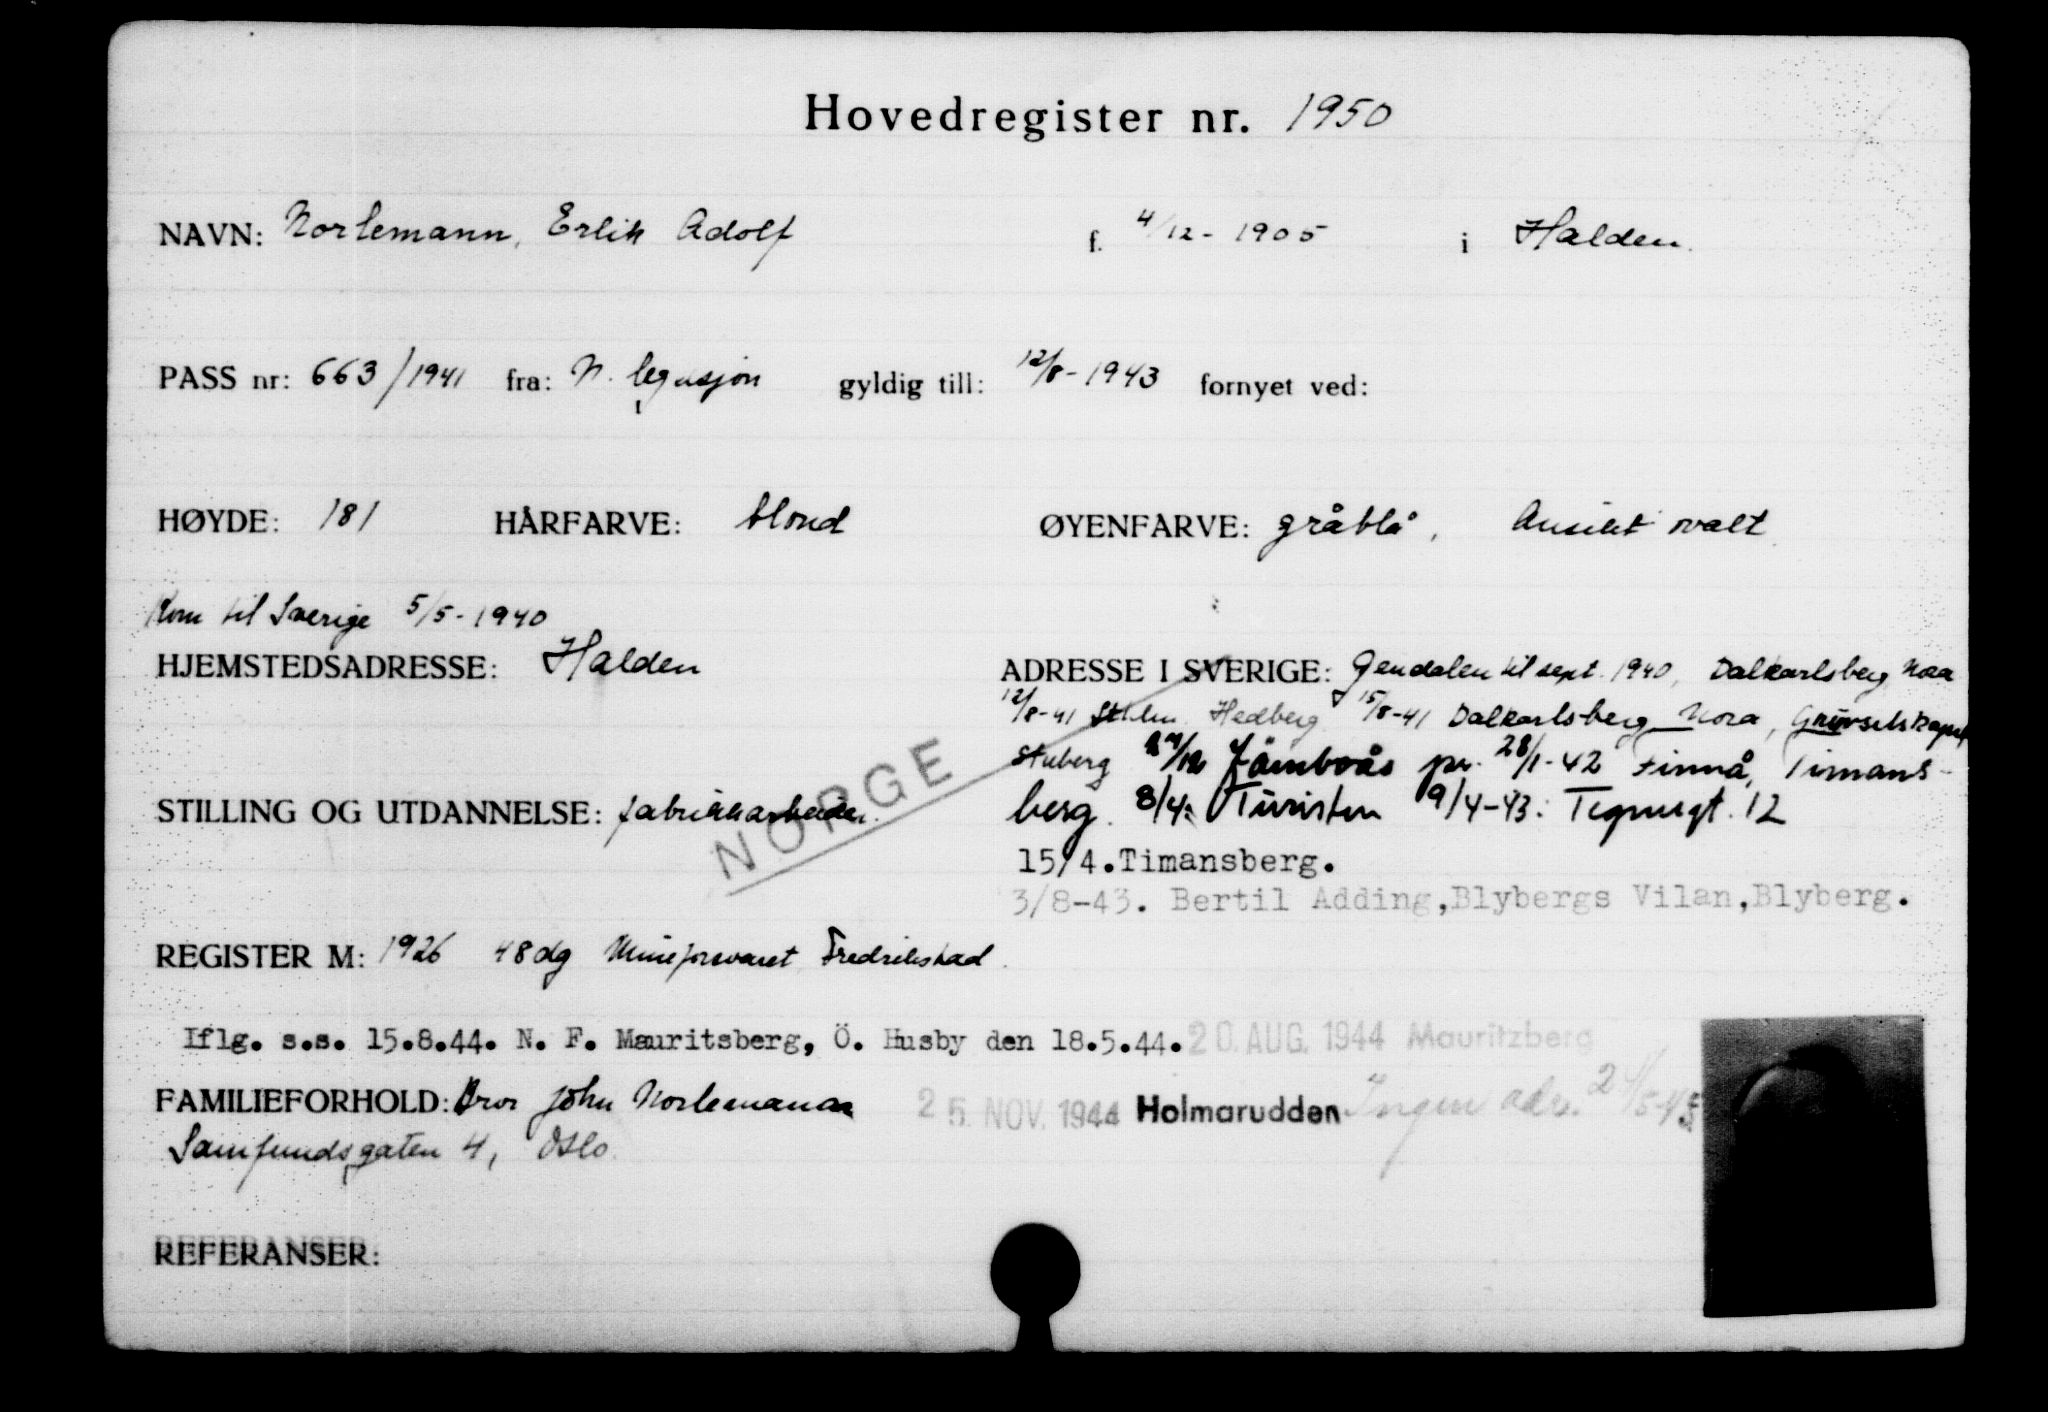 Hovedregister nr. 1950
NAVN: Norlemann, Erlik Adolf f. 4/12-1905 i Halden.
PASS nr: 663/1941 fra: N. legasjon gyldig till: 12/8-1943 fornyet ved:
HØYDE: 181 HÅRFARVE: blond ØYENFARVE: gråblå, Ansikt ovalt
Kom til Sverige 5/5-1940
HJEMSTEDSADRESSE: Halden ADRESSE I SVERIGE: til sept. 1940, Dalkarlsberg Nora
12/8-41 Hedberg 15/8-41 Dalkarlsberg Nora,
Stuberg pr. 28/1-42 Finnå, Timans-
berg. 8/4: Turisten 9/4-43: Tegnergt. 12
NORGE
STILLING OG UTDANNELSE: fabrikkarbeider.
15/4.Timansberg.
3/8-43. Bertil Adding,Blybergs Vilan,Blyberg.
REGISTER M: 1926 48 dg Mineforsvaret Fredrikstad.
Iflg. s.s. 15.8.44. N. F. Mauritsberg, Ö. Husby den 18.5.44. 20. AUG. 1944 Mauritzberg
FAMILIEFORHOLD: Bror John Norlemann 25. NOV. 1944 Holmarudden Ingen adr.
Samfundsgaten 4, Oslo.
REFERANSER: